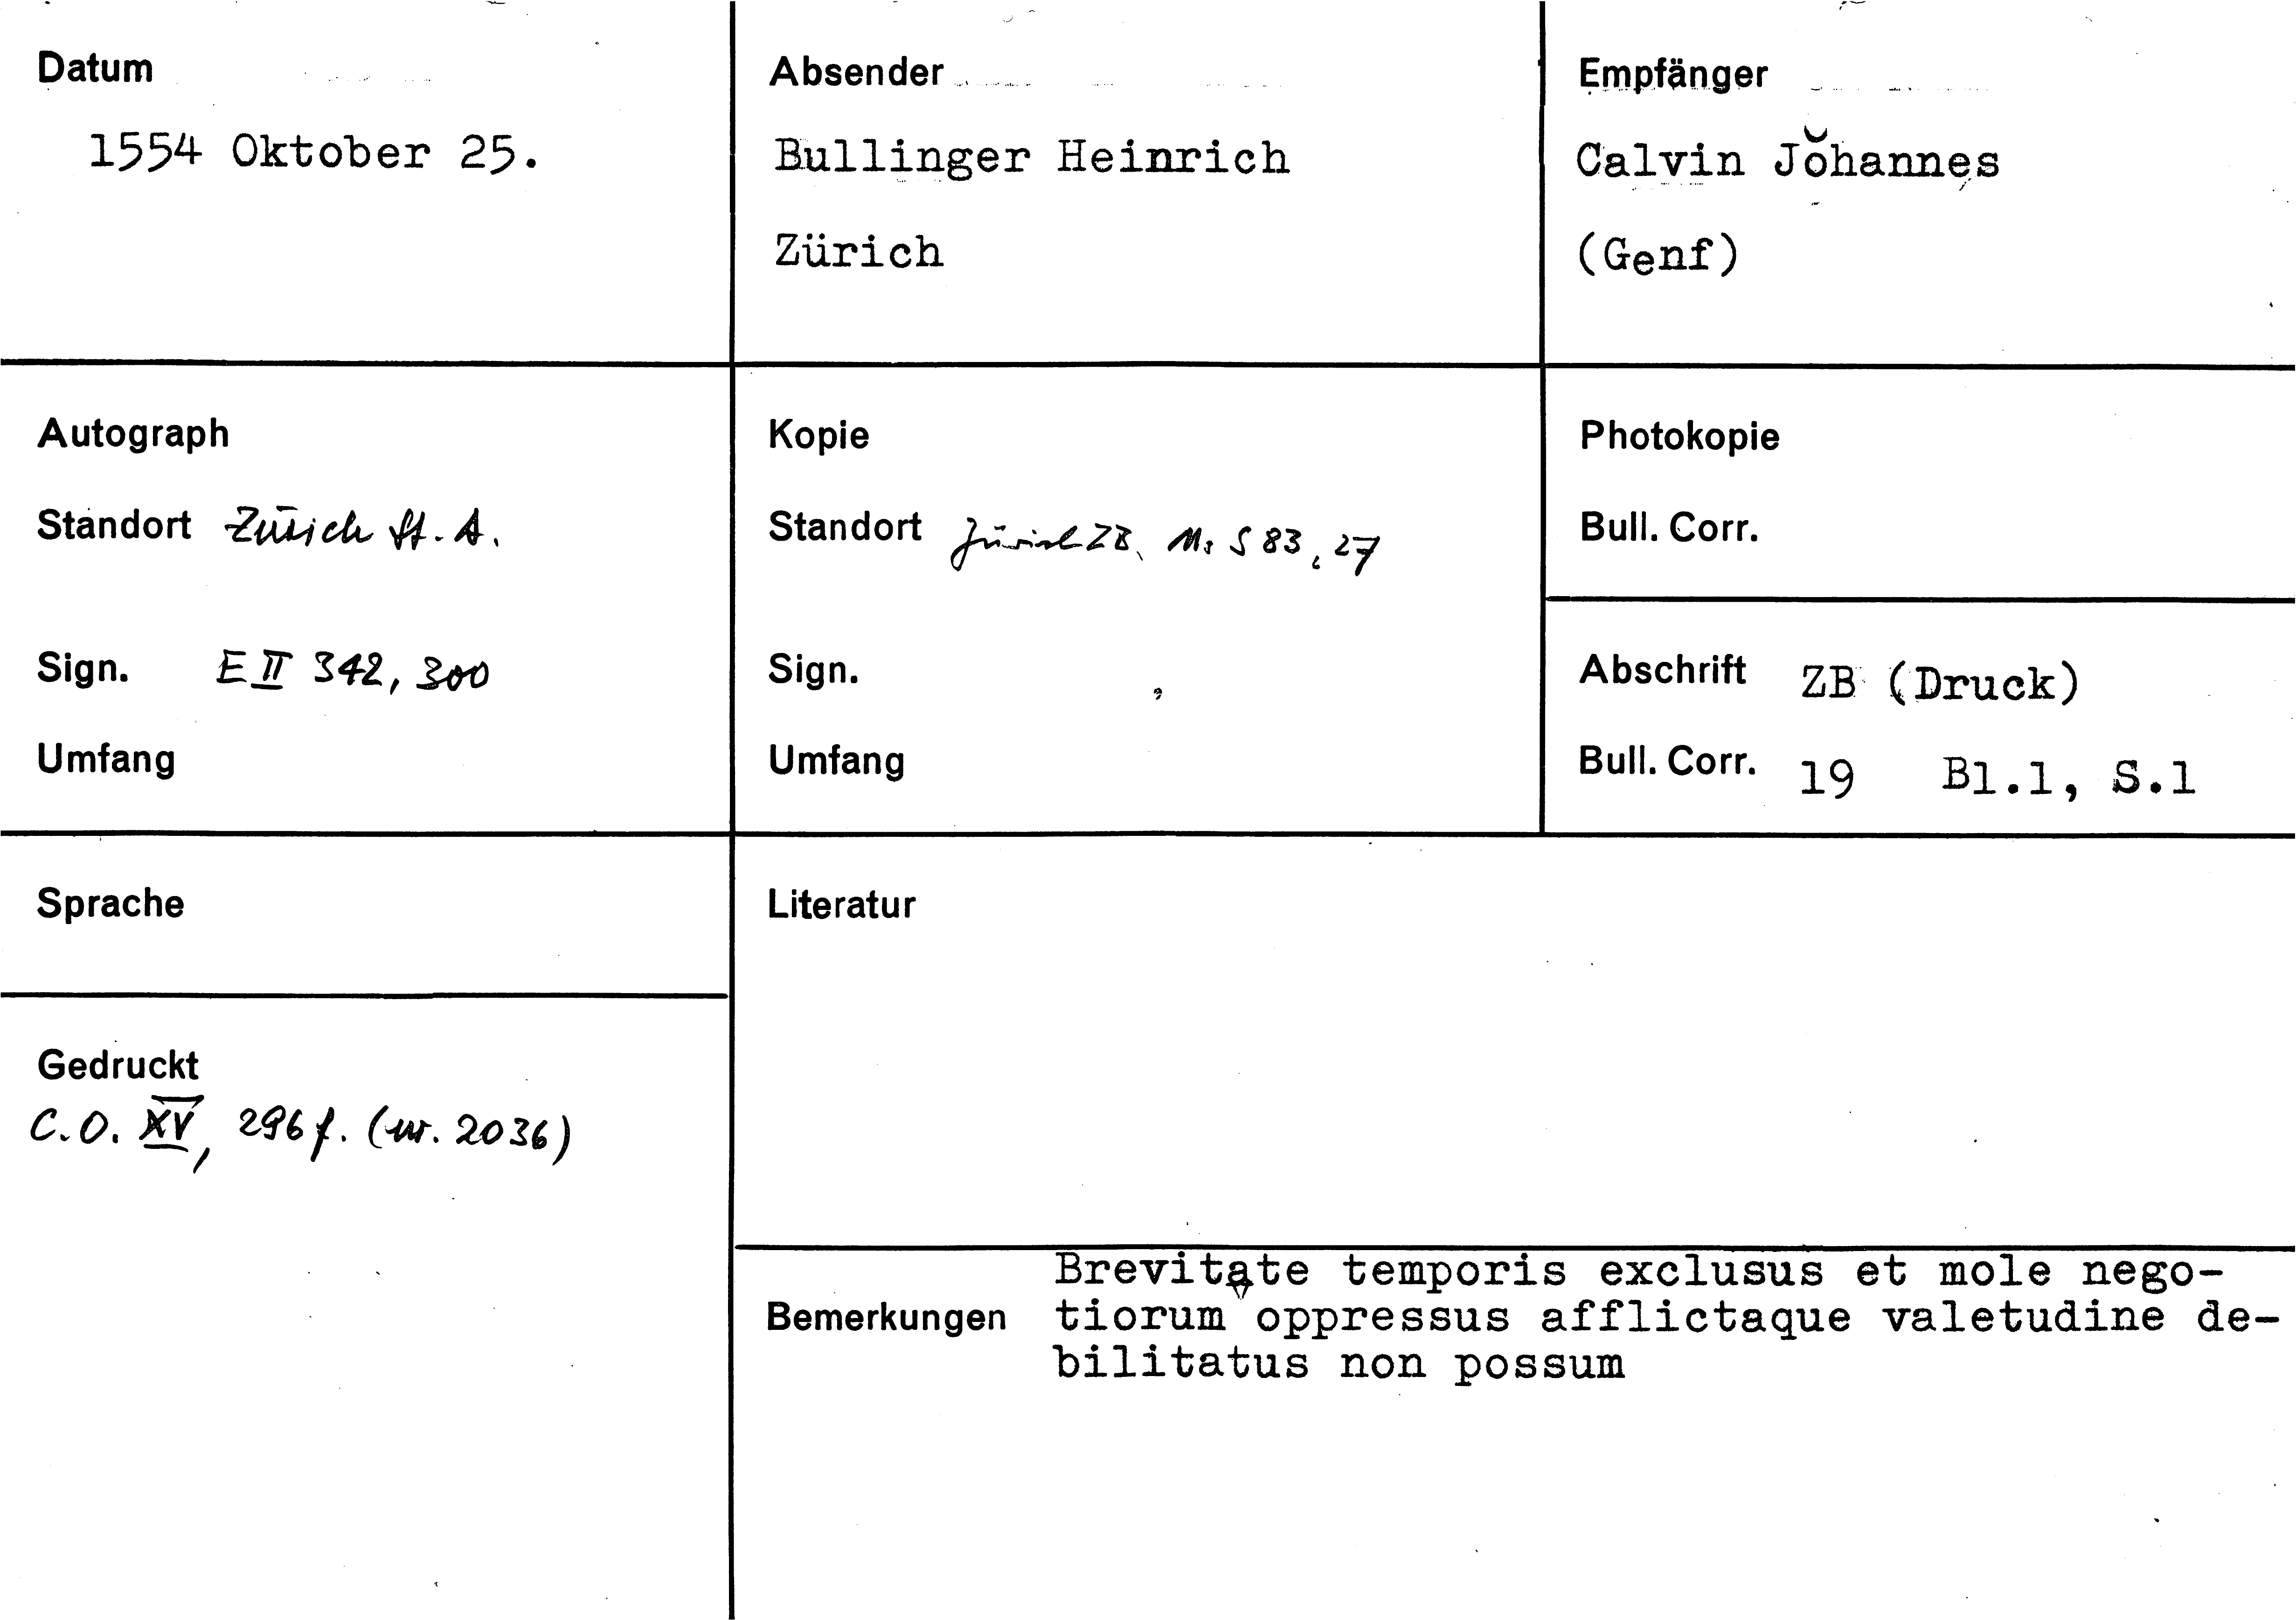 Datum
1554 Oktober 25.
Absender
Bullinger Heinrich
Zürich
Empfänger
Calvin Johannes
(Genf)
Autograph
Standort Zürich St. A.
Sign. E II 342, 300
Umfang
Kopie
Standort Zürich ZB, Ms S 83, 27
Sign.
Umfang
Photokopie
Bull. Corr.
Abschrift ZB (Druck)
Bull. Corr. 19 Bl.1, S.1
Sprache
Gedruckt
C.O. XV, 296 f. (nr. 2036)
Literatur
Bemerkungen
Brevitate temporis exclusus et mole nego-
tiorum oppressus afflictaque valetudine de-
bilitatus non possum